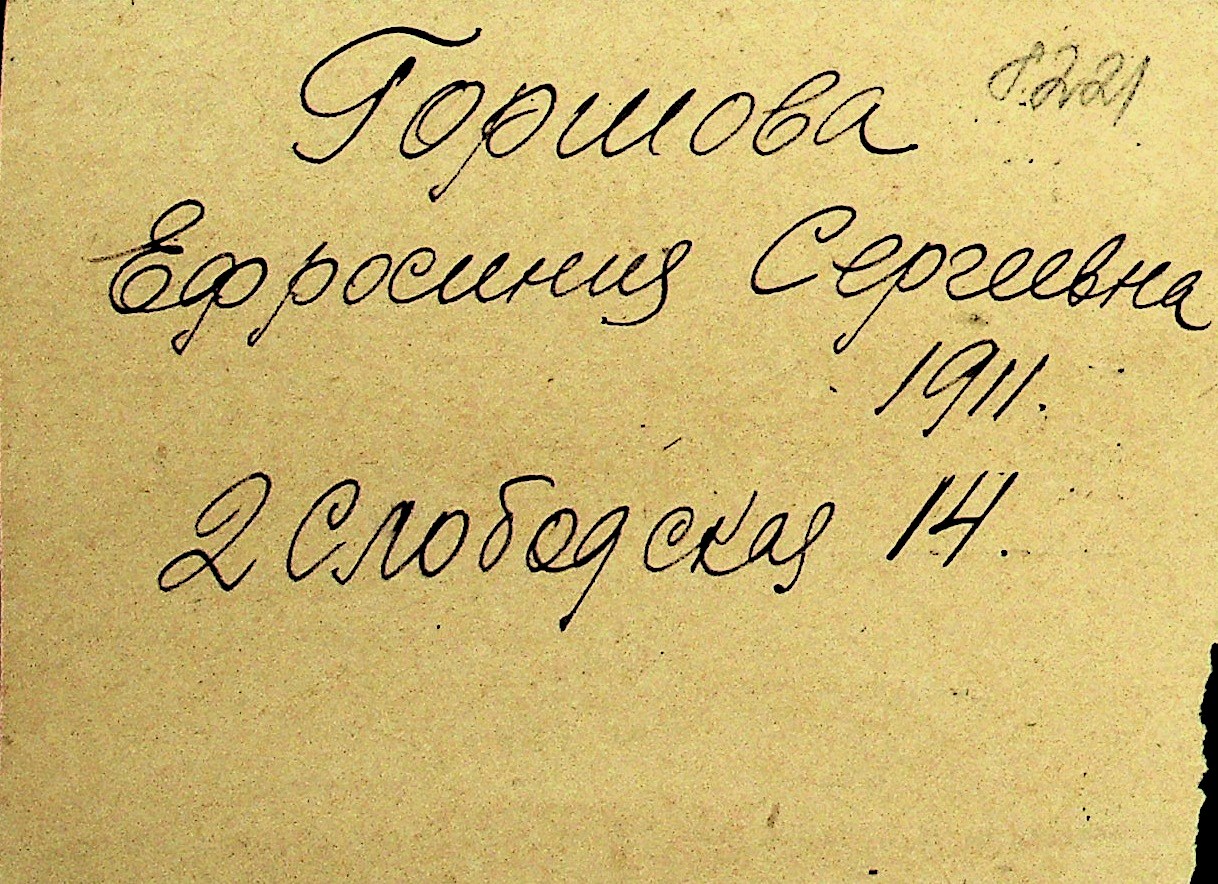 Горшова
Ефросиния Сергеевна
1911.
2 Слободская 14.